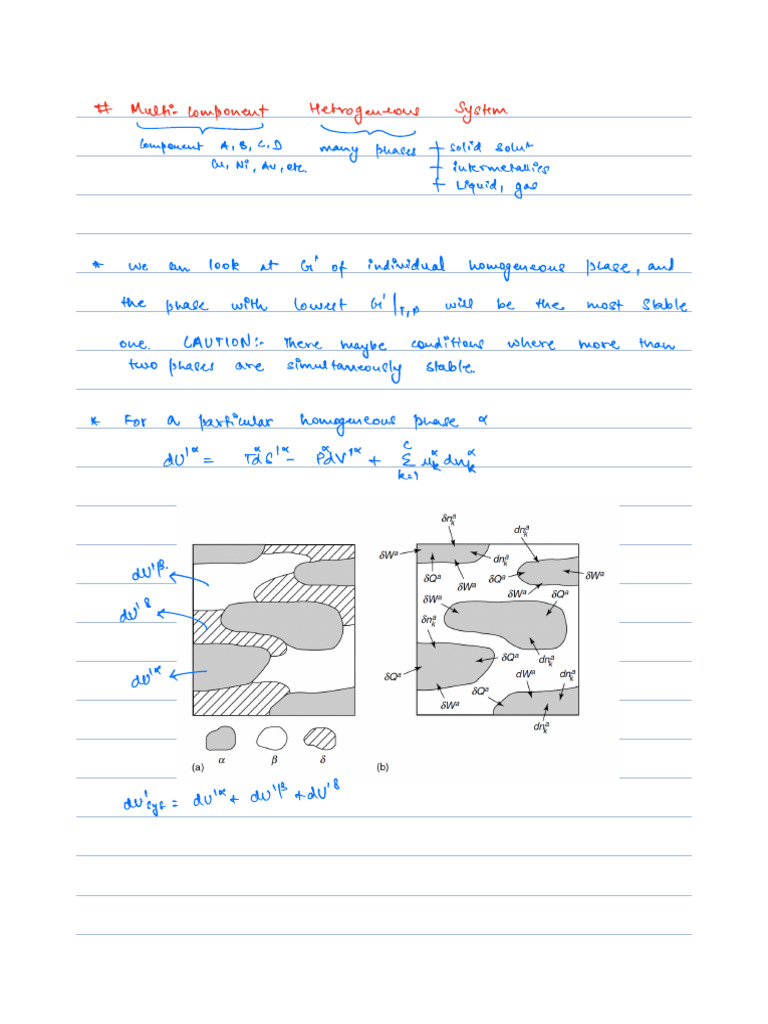 # Multi-component Hetrogeneous System
Component A, B, C, D many phases solid solut
Cu, Ni, Au, etc. intermetallics
Liquid, gas
* We can look at G' of individual homogeneous phase, and
the phase with lowest G'|T,P will be the most stable
one. CAUTION:- There maybe conditions where more than
two phases are simultaneously stable.
* For a particular homogeneous phase α
dU'^α = T^α dS'^α - P^α dV'^α + Σ_{k=1}^{c} μ_k^α dn_k^α
dU'^β
dU'^δ
dU'^α
α β δ
(a)
δn_k^a
dn_k^a
δW^a
dn_k^a
δQ^a
δW^a
δQ^a
δW^a
δW^a
δQ^a
δW^a
δn_k^a
δQ^a
dn_k^a
δQ^a
dW^a
dn_k^a
δQ^a
δW^a
dn_k^a
(b)
dU'sys = dU'^α + dU'^β + dU'^δ